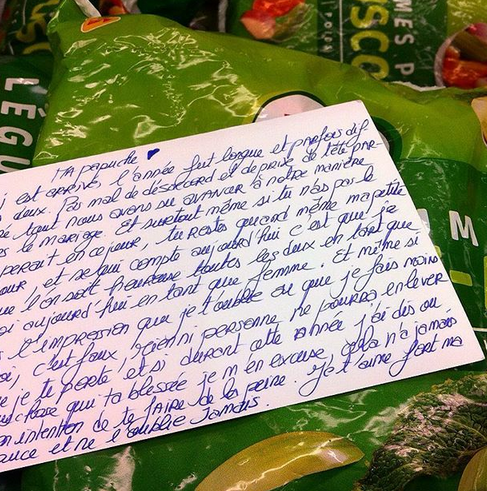 MES P
USCO
LÉGU
M
Ma papuche ♥
i est arrivé, l'année fut longue et parfois dif
deux. Pas mal de désaccord et de prise de tête pr
tout nous avons su avancer à notre manière
le mariage. Et surtout même si tu n'as pas le
perait en ce jour, tu restes quand même ma petite
our, et se qui compte aujourd'hui c'est que je
ue l'on soit heureuse toutes les deux en tant que
oi aujourd'hui en tant que femme. Et même si
l'impression que je t'oublie ou que je fais moins
oi, c'est faux, rien ni personne ne pourra enlever
e je te porte, et si durant cette année j'ai dis ou
chose qui t'a blessée je m'en excuse, cela n'a jamais
on intention de te faire de la peine. Je t'aime fort ma
uce et ne l'oublie jamais.